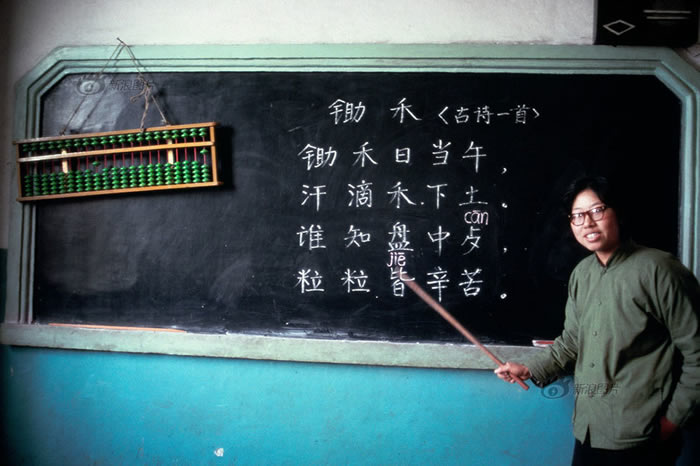 锄禾〈古诗一首〉
锄禾日当午，
汗滴禾下土。
cān
谁知盘中歺，
jiē
粒粒皆辛苦。
新浪图片
新浪图片